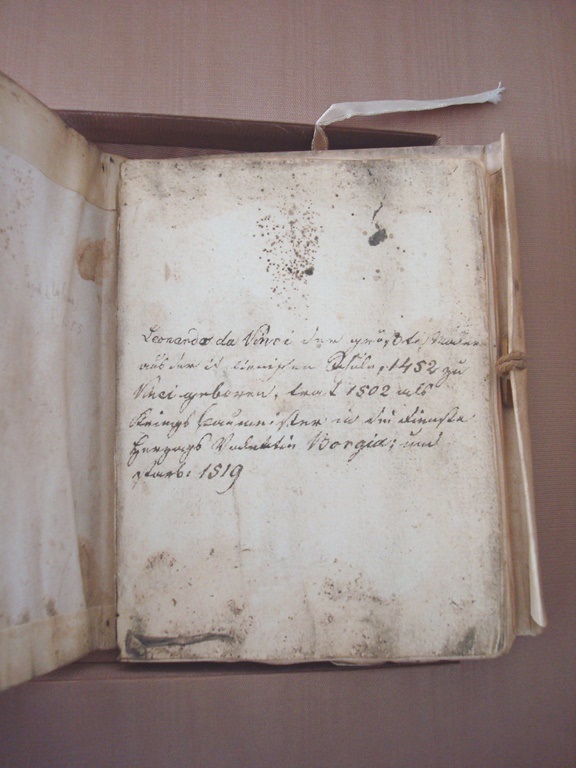 Leonardo da Vinci der größte Maler
aus der Schule, 1452 zu
Vinci geboren, trat 1502 als
Kriegsbaumeister in die Dienste
Herzogs Valentin Borgia; und
starb. 1519